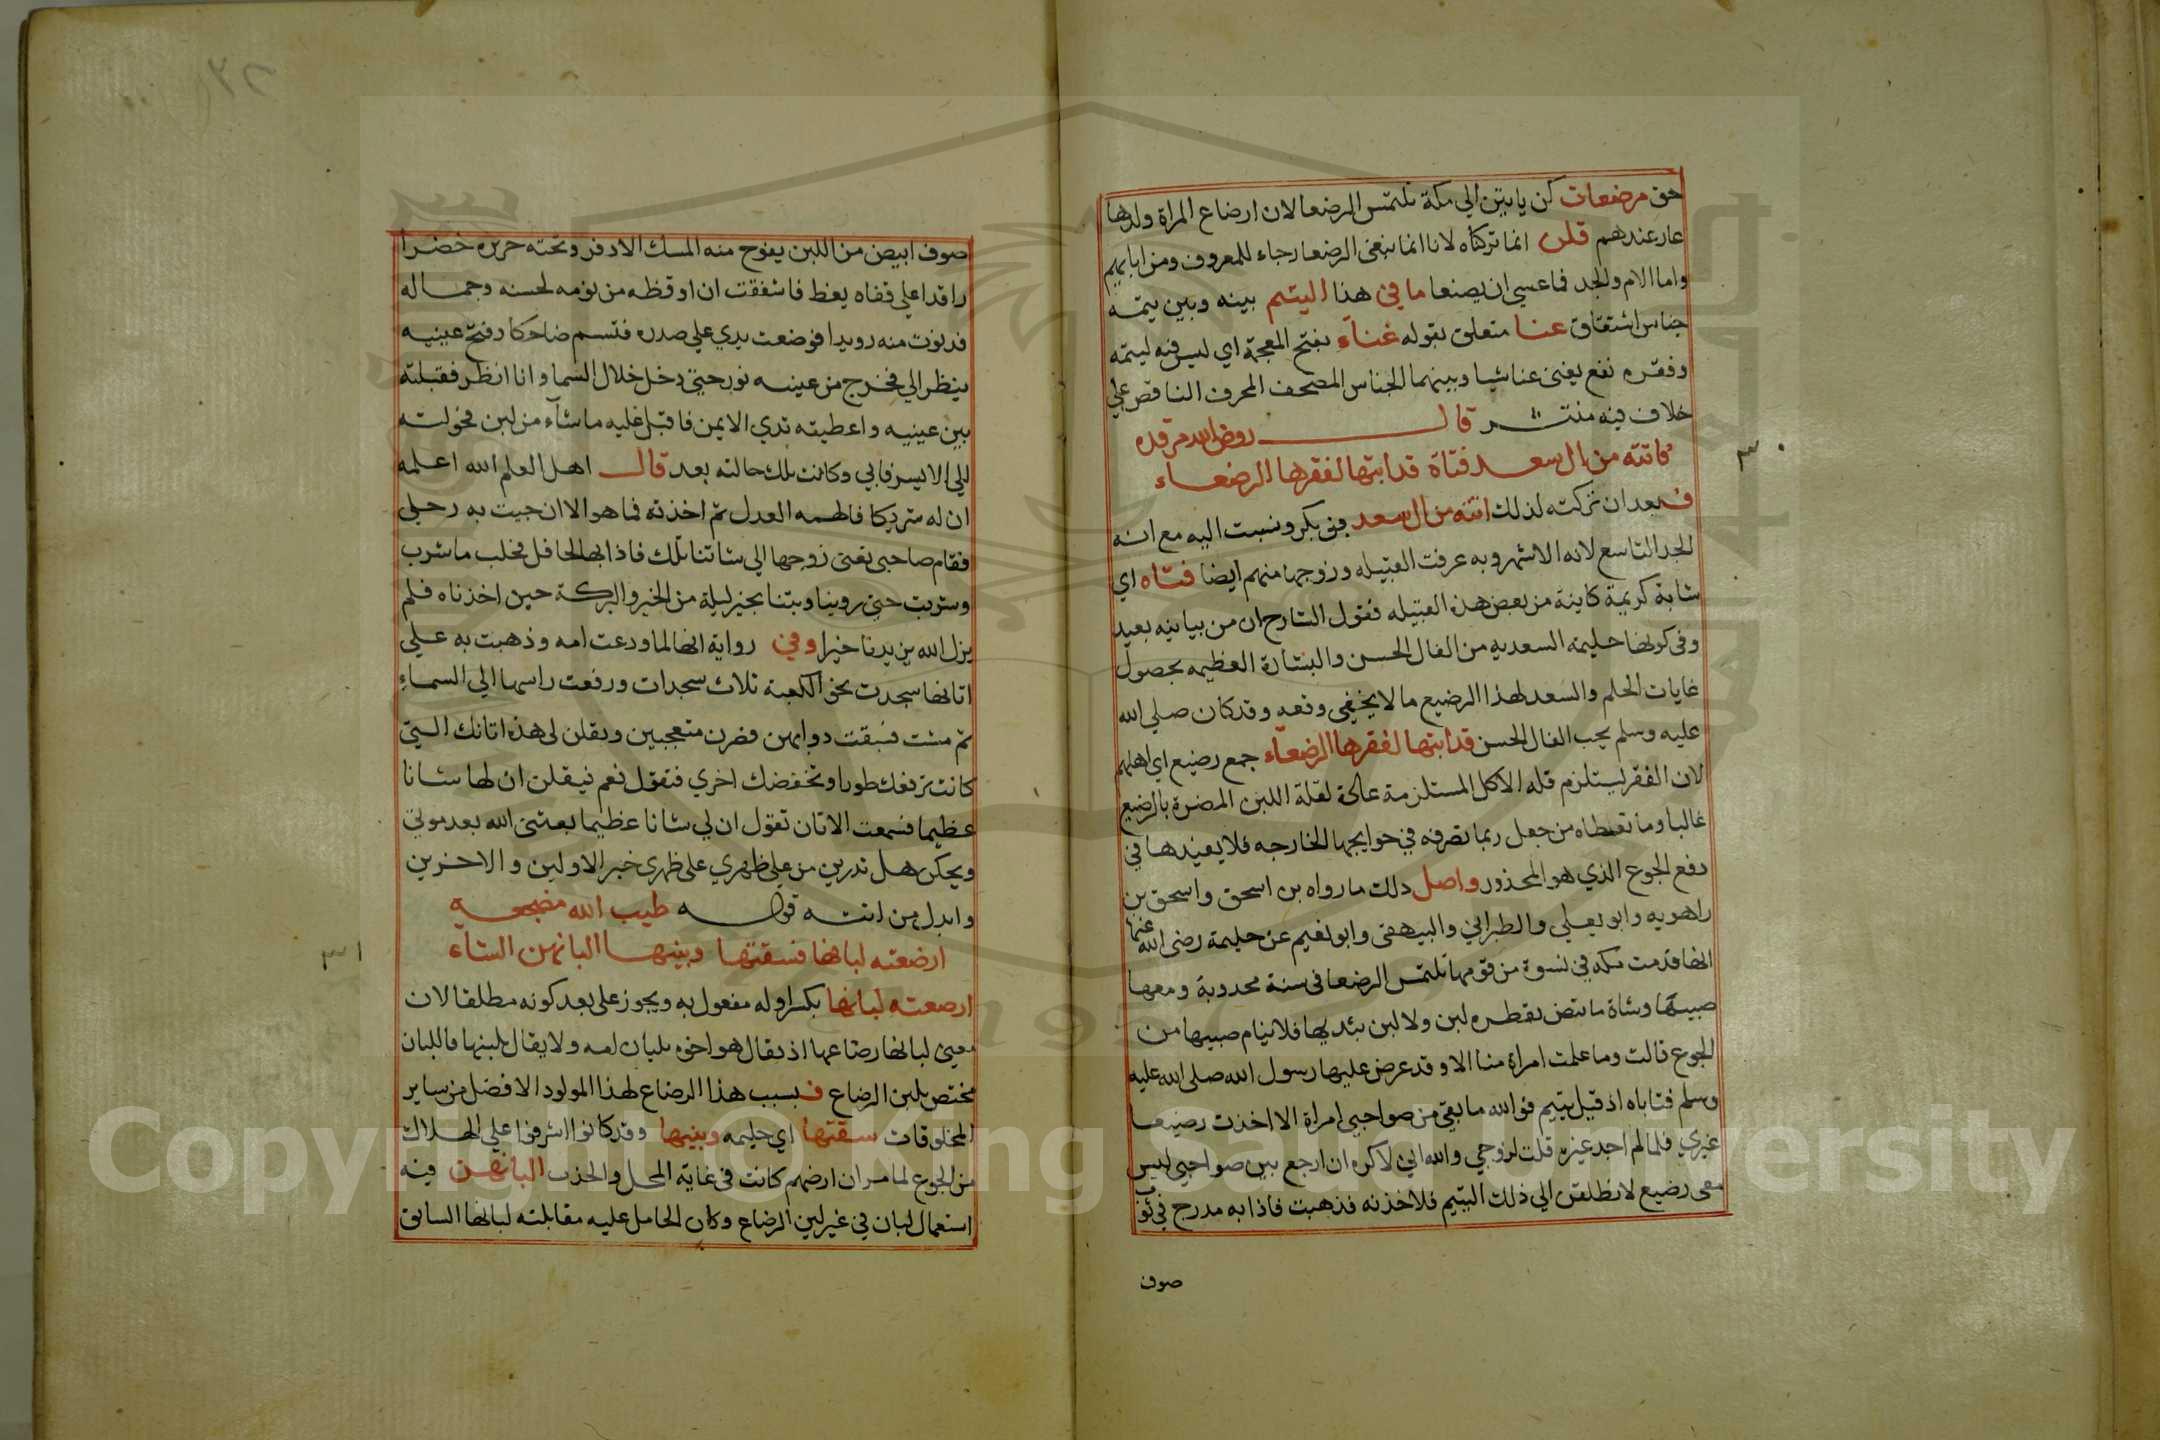 حق مرضعات كن ياتين الي مكة تلتمس الرضعا لان ارضاع المراة ولدها
عار عندهم قلن انما تركناه لانا انما نبغي الرضعا رجاء للمعروف ومن ابايهم
واما الام والجد فما عسي ان يصنعا ما في هذا اليتيم بينه وبين يتمه
جناس اشتقاق عنا متعلق بقوله غناء بفتح المعجمة اي ليس فيه ليتمه
وفقره نفع يغني عنا شيا وبينهما الجناس المصحف المحرف الناقص علي
خلاف فيه منتشر قال روض الله مرقده
فاتته من ال سعد فتاة قد ابتها لفقرها الرضعاء
فبعد ان تركته لذلك اتته من ال سعد بن بكر ونسبت اليه مع انه
الجد التاسع لانه الاشهر وبه عرفت القبيله وزوجها منهم ايضا فتاه اي
شابة كريمة كاينة من بعض هذه القبيله فقول الشارح ان من بيانيه بعيد
وفي كونها حليمة السعديه من الفال الحسن والبشارة العظيمه بحصول
غايات الحلم والسعد لهذا الرضيع ما لا يخفي وقعه وقد كان صلي الله
عليه وسلم يحب الفال الحسن قد ابتها لفقرها الرضعاء جمع رضيع اي اهلهم
لان الفقر ليستلزم قله الاكل المستلزمة عالة لقلة اللبن المضرة بالرضيع
غالبا وما تعطاه من جعل ربما تصرفه في حوايجها الخارجه فلا يفيدها في
دفع الجوع الذي هو المحذور واصل ذلك ما رواه بن اسحق واسحق بن
راهويه وابو يعلي والطبراني والبيهقي وابو نعيم عن حليمة رضي الله عنها
انها قدمت مكه في نسوة من قومها تلتمس الرضعا في سنة مجدوبة ومعها
صبيها وشاة ما تبض بقطره لبن ولا لبن بثديها فلا ينام صبيها من
الجوع قالت وما علمت امراة منا الا وقد عرض عليها رسول الله صلي الله عليه
وسلم فتاباه اذ قيل يتيم فو الله ما بقي من صواحبي امراة الا اخذت رضيعا
غيري فلما لم اجد غيره قلت لزوجي والله اني لاكره ان ارجع بين صواحبي ليس
معي رضيع لانطلقن الي ذلك اليتيم فلاخذنه فذهبت فاذا به مدرج في ثوب
صوف
٣٠
صوف ابيض من اللبن يفوح منه المسك الادفر وتحته حريره خضرا
راقدا علي قفاه يغط فاشفقت ان اوقظه من نومه لحسنه وجماله
فدنوت منه رويدا فوضعت يدي علي صدره فتبسم ضاحكا وفتح عينيه
ينظر الي فخرج من عينيه نور حتي دخل خلال السما وانا انظر فقبلته
بين عينيه واعطيته ثدي الايمن فاقبل عليه ما شاء من لبن فحولته
الي الايسر فابي وكانت تلك حالته بعد قال اهل العلم الله اعلمه
ان له شريكا فالهمه العدل ثم اخذته فما هو الا ان جيت به رحلي
فقام صاحبي تعني زوجها الي شاتنا تلك فاذا انها لحافل فحلب ما شرب
وشربت حتي روينا وبتنا بخير ليلة من الخير والبركة حين اخذناه فلم
يزل الله يزيدنا خيرا وفي رواية انها لما ودعت امه وذهبت به علي
اتانها سجدت نحو الكعبة ثلاث سجدات ورفعت راسها الي السماء
ثم مشت فسبقت دوابهن فصرن متعجبين ويقلن لي هذه اتانك التي
كانت ترفعك طورا وتخفضك اخري فتقول نعم فيقلن ان لها شانا
عظيما فسمعت الاتان تقول ان لي شانا عظيما بعثني الله بعد موتي
ويحكن هل تدرين من علي ظهري علي ظهري خير الاولين والاخرين
وابدل من اتته قوله طيب الله مضجعه
ارضعته لبانها فسقتها وبنيها البانهن الشاء
ارضعته لبانها بكسر اوله مفعول به ويجوز علي بعد كونه مطلقا لان
معني لبانها رضاعها اذ يقال هو اخوه بلبان امه ولا يقال بلبنها فاللبان
مختص بلبن الرضاع فبسبب هذا الرضاع لهذا المولود الافضل من ساير
المخلوقات سقتها اي حليمه وبنيها وقد كانوا اشرفوا علي الهلاك
من الجوع لما مر ان ارضهم كانت في غاية المحل والجذب البانهن فيه
استعمال لبان في غير لبن الرضاع وكان الحامل عليه مقابلته لبانها السابق
٣١
٣٢
Copyright © King Saud University
1957